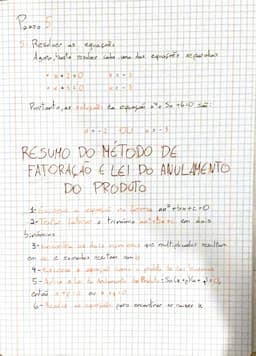 Passo 5
5. Resolver as equações
Agora, basta resolver cada uma das equações separadas
x + 2 = 0 x = -2
x + 3 = 0 x = -3
Portanto, as soluções da equação x² + 5x + 6 = 0 são:
x = -2 OU x = -3
RESUMO DO MÉTODO DE
FATORAÇÃO E LEI DO ANULAMENTO
DO PRODUTO
1- a equação na forma ax² + bx + c = 0
2- o trinômio ax² + bx + c em dois
binômios
3- dois números que multiplicados resultam
em e somados resultam em b
4- a equação como o produto de
5- Lei do Anulamento do Produto: Se (x + p)(x + q) = 0,
então x + p = 0 ou x + q = 0
6- Resolva as equações para encontrar os valores x